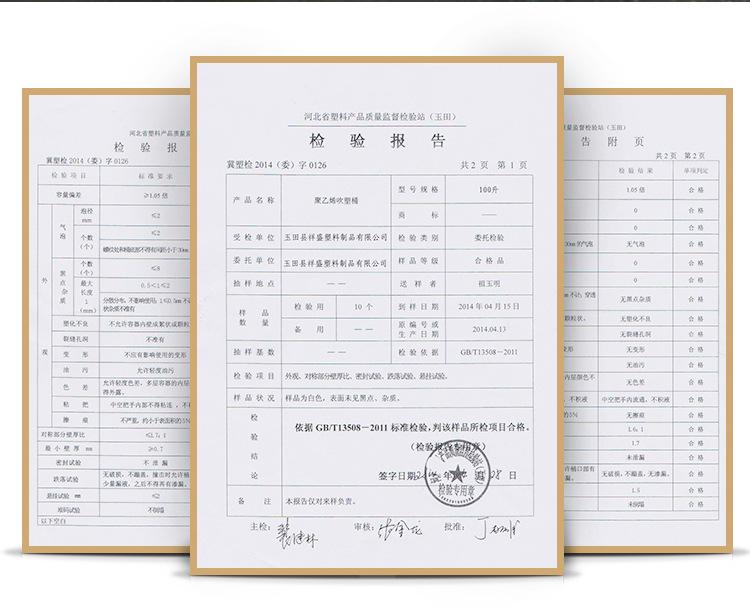 河北省塑料产品质量监督检验站（玉田）
检 验 报 告
冀塑检 2014（委）字 0126 共 2 页 第 1 页
产 品 名 称 聚乙烯吹塑桶 型 号 规 格 100升
商 标 ——
受 检 单 位 玉田县祥盛塑料制品有限公司 检 验 类 别 委托检验
委 托 单 位 玉田县祥盛塑料制品有限公司 样 品 等 级 合 格 品
抽 样 地 点 —— 送 样 者 祖玉明
样 品 数 量 检 验 用 10 个 到 样 日 期 2014 年 04 月 15 日
备 用 —— 原 编 号 或 生 产 日 期 2014.04.13
抽 样 基 数 —— 检 验 依 据 GB/T13508－2011
检 验 项 目 外观、对称部分壁厚比、密封试验、跌落试验、悬挂试验。
样 品 状 况 样品为白色，表面未见黑点、杂质。
检 验 结 论
依据 GB/T13508－2011 标准检验，判该样品所检项目合格。
（检验报告专用章）
签字日期
检验专用章
备 注 本报告仅对来样负责。
主检： 审核： 批准：
河北省塑料产品质量监
检 验 报
冀塑检 2014（委）字 0126
检 验 项 目 标 准 要 求
容量偏差 ≥1.05 倍
外 观
气 泡 泡径 mm ≤2
个数 (个) ≤2
黑 点 杂 质 个数 (个) ≤8
最 大 长度 l (mm) 0.5＜l≤2
塑化不良 不允许容器内壁成絮状或颗粒
裂缝孔洞 不准有
变 形 不应有影响使用的变形
油 污 允许轻度油污
色 差 允许轻度色差，多层容器的内层
粘 把 中空把手内部不得粘连，不
擦 痕 不严重，约小于表面积的5%
对称部分壁厚比 ≤1.7：1
最 小 壁 厚 mm ≥0.7
密封试验 不 泄 漏
跌落试验 无破损，不蹦盖，撞击时允许桶
少量漏液，之后不得再有渗漏。
悬挂试验 mm ≤2
堆码试验 不倒塌
以下空白
量监督检验站（玉田）
告 附 页
共 2 页 第 2 页
检 验 结 果 单项判定
1.05 倍 合 格
0 合 格
0 合 格
无气泡 合 格
0 合 格
0 合 格
无黑点杂质 合 格
无塑化不良 合 格
无裂缝孔洞 合 格
无变形 合 格
无油污 合 格
无色差 合 格
中空把手内流通，不积液 合 格
无擦痕 合 格
1.6：1 合 格
1.7 合 格
未泄漏 合 格
无破损，不蹦盖，无渗漏。 合 格
1.5 合 格
未倒塌 合 格